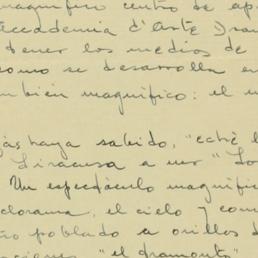 magnífico centro de ap
Accademia d'Arte Dram
tener los medios de
como se desarrolla en
mbién magnífico: el m
ás haya sabido, "eché l
Siracusa a ver "Lo
Un espectáculo magnífic
clorama, el cielo y com
ño poblado a orillas d
"el dramonto"